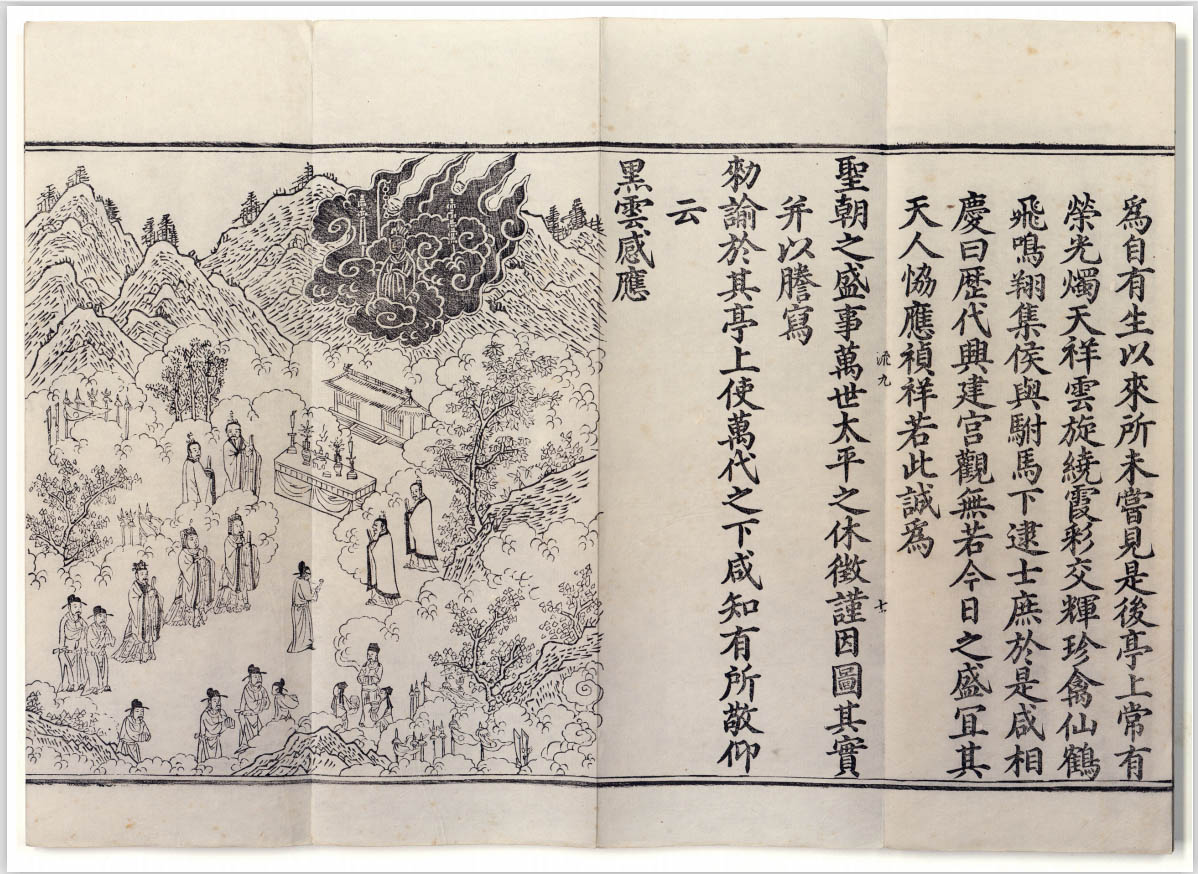 為自有生以來所未嘗見是後亭上常有
榮光燭天祥雲旋繞霞彩交輝珍禽仙鶴
飛鳴翔集侯與駙馬下逮士庶於是咸相
慶曰歷代興建宮觀無若今日之盛冝其
天人恊應禎祥若此誠為
流九
七
聖朝之盛事萬世太平之休徵謹因圖其實
并以謄寫
勑諭於其亭上使萬代之下咸知有所敬仰
云
黑雲感應